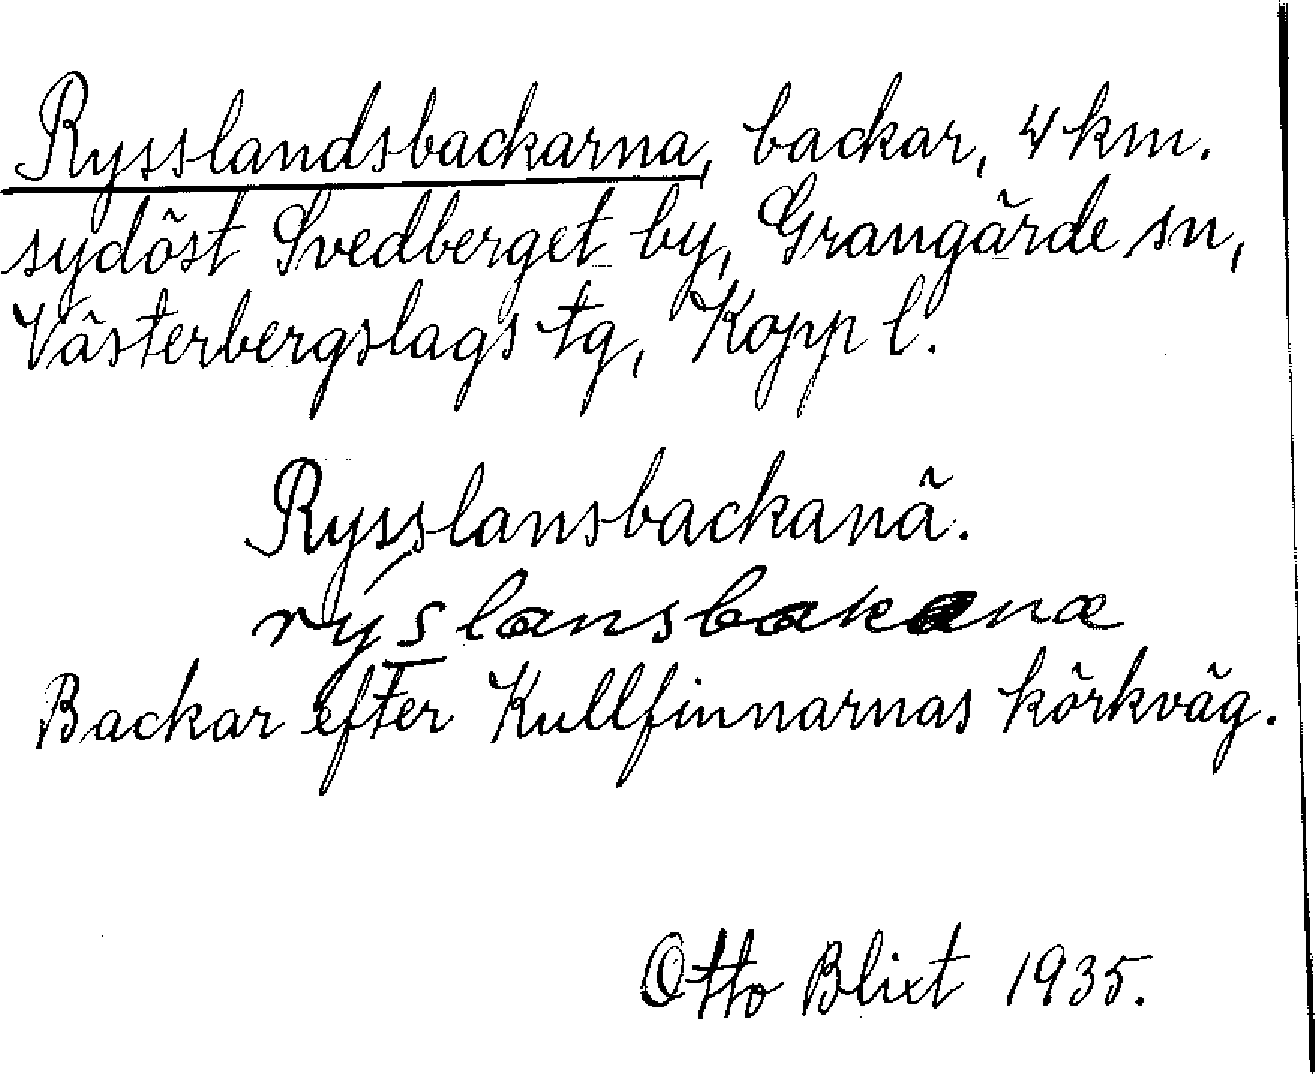 Rysslandsbackarna, backar, 4 km.
sydöst Svedberget by, Grangärde sn,
Västerbergslags tg, Kopp l.
Rysslansbackanä.
rýslansbakanæ
Backar efter Kullfinnarnas körkväg.
Otto Blixt 1935.